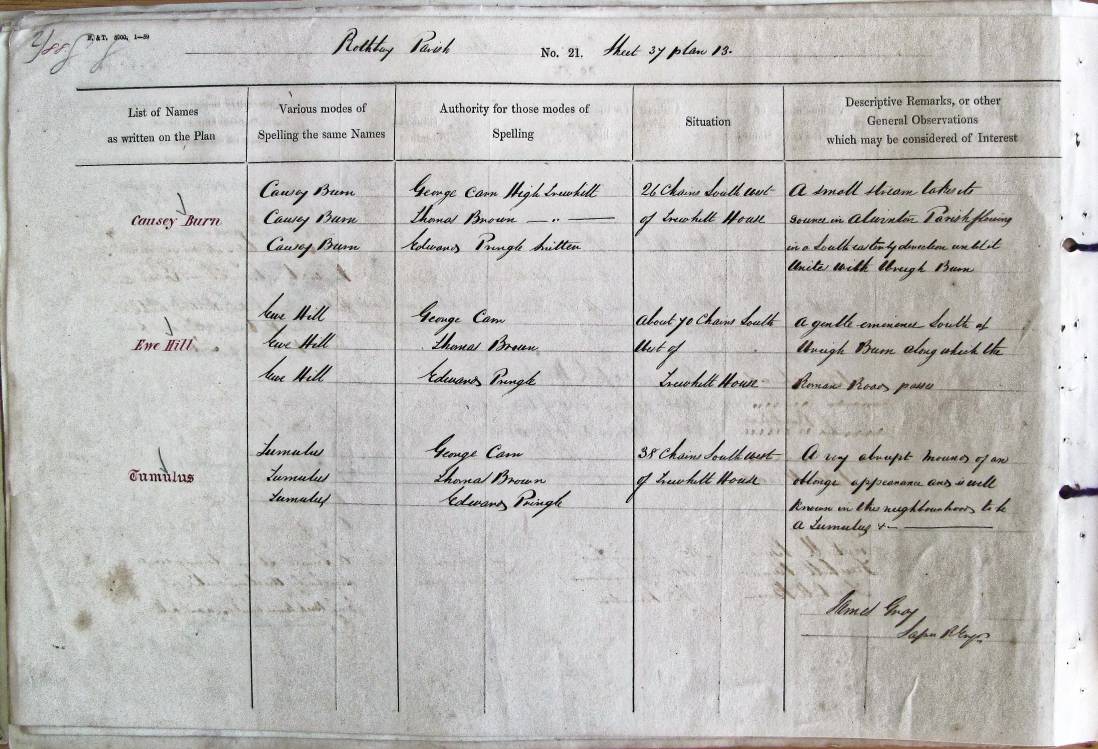 2/88
R. & T. 5000, 1—59
Rothbury Parish No. 21. Sheet 37 plan 13.
List of Names as written on the Plan
Various modes of Spelling the same Names
Authority for those modes of Spelling
Situation
Descriptive Remarks, or other General Observations which may be considered of Interest
Causey Burn
Causey Burn
Causey Burn
Causey Burn
George Carn High Trewhitt
Thomas Brown — " —
Edward Pringle Snitter
26 Chains South west
of Trewhitt House
A small stream takes its
source in Alwinton Parish flowing
in a South easterly direction until it
Unite with Wreigh Burn
Ewe Hill
Ewe Hill
Ewe Hill
Ewe Hill
George Carn
Thomas Brown
Edward Pringle
About 70 Chains South
West of
Trewhitt House
A gentle eminence South of
Wreigh Burn along which the
Roman Road passes
Tumulus
Tumulus
Tumulus
Tumulus
George Carn
Thomas Brown
Edward Pringle
38 Chains South west
of Trewhitt House
A very abrupt mound of an
oblong appearance and is well
Known in the neighbourhood to be
a Tumulus
James Gray
Sapper R Engrs